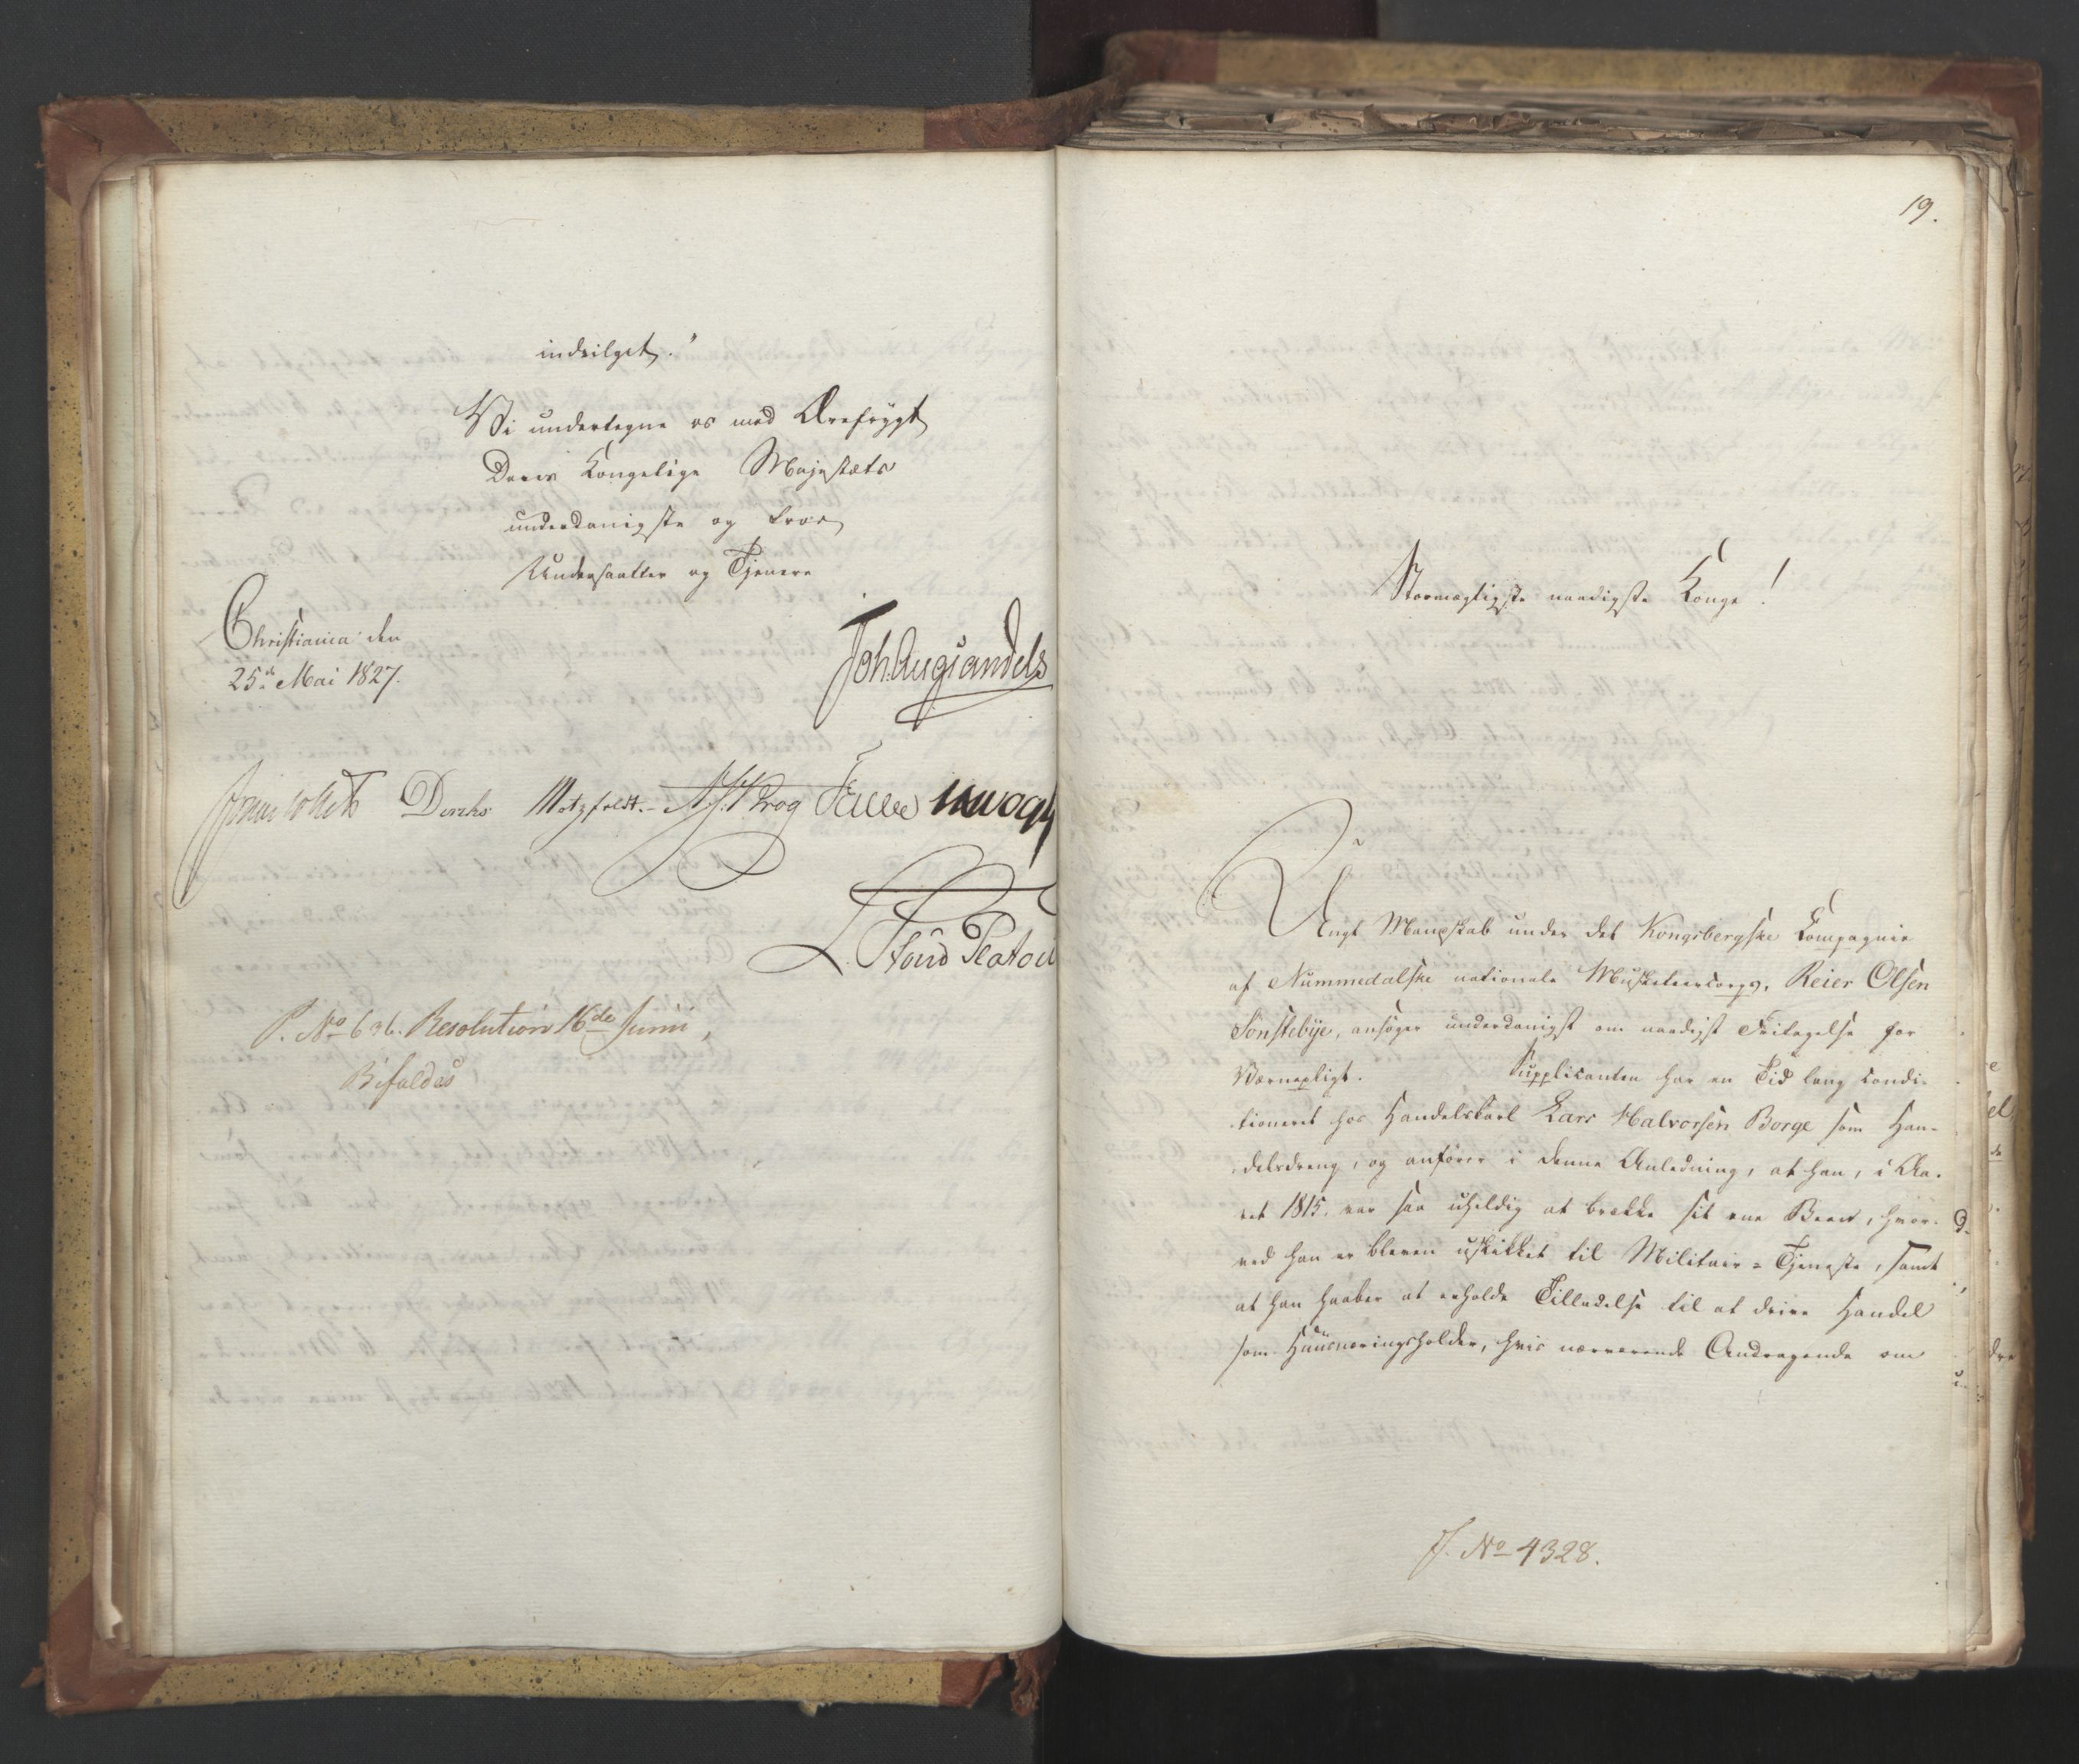 indvilget."
Vi undertegne os med Ærefrygt
Deres Kongelige Majestæts
underdanigste og troe
Undersaatter og Tjenere
Christiania den
25de Mai 1827.
Joh. Aug. Sandels
Jonas Collett Diriks Motzfeldt. A. J. Krog Fasting
P. No 636. Resolution 16de Junii,
Bifaldes
19.
Stormægtigste naadigste Konge!
Ungt Mandskab under det Kongsbergske Compagnie
af Nummedalske nationale Musketeercorps, Reier Olsen
Sønstebye, ansøger underdanigst om naadigst Fritagelse for
Værnepligt. Supplicanten har en Tid lang condi-
tioneret hos Handelskarl Lars Halvorsen Borge som Han-
delsdreng, og anfører i denne Anledning, at han, i Aa-
ret 1815. var saa uheldig at brække sit ene Been, hvor-
ved han er bleven uskikket til Militair-Tjeneste, samt
at han haaber at erholde Tilladelse til at drive Handel
som Huusnæringsholder, hvis nærværende Andragende om
J. No 4328.